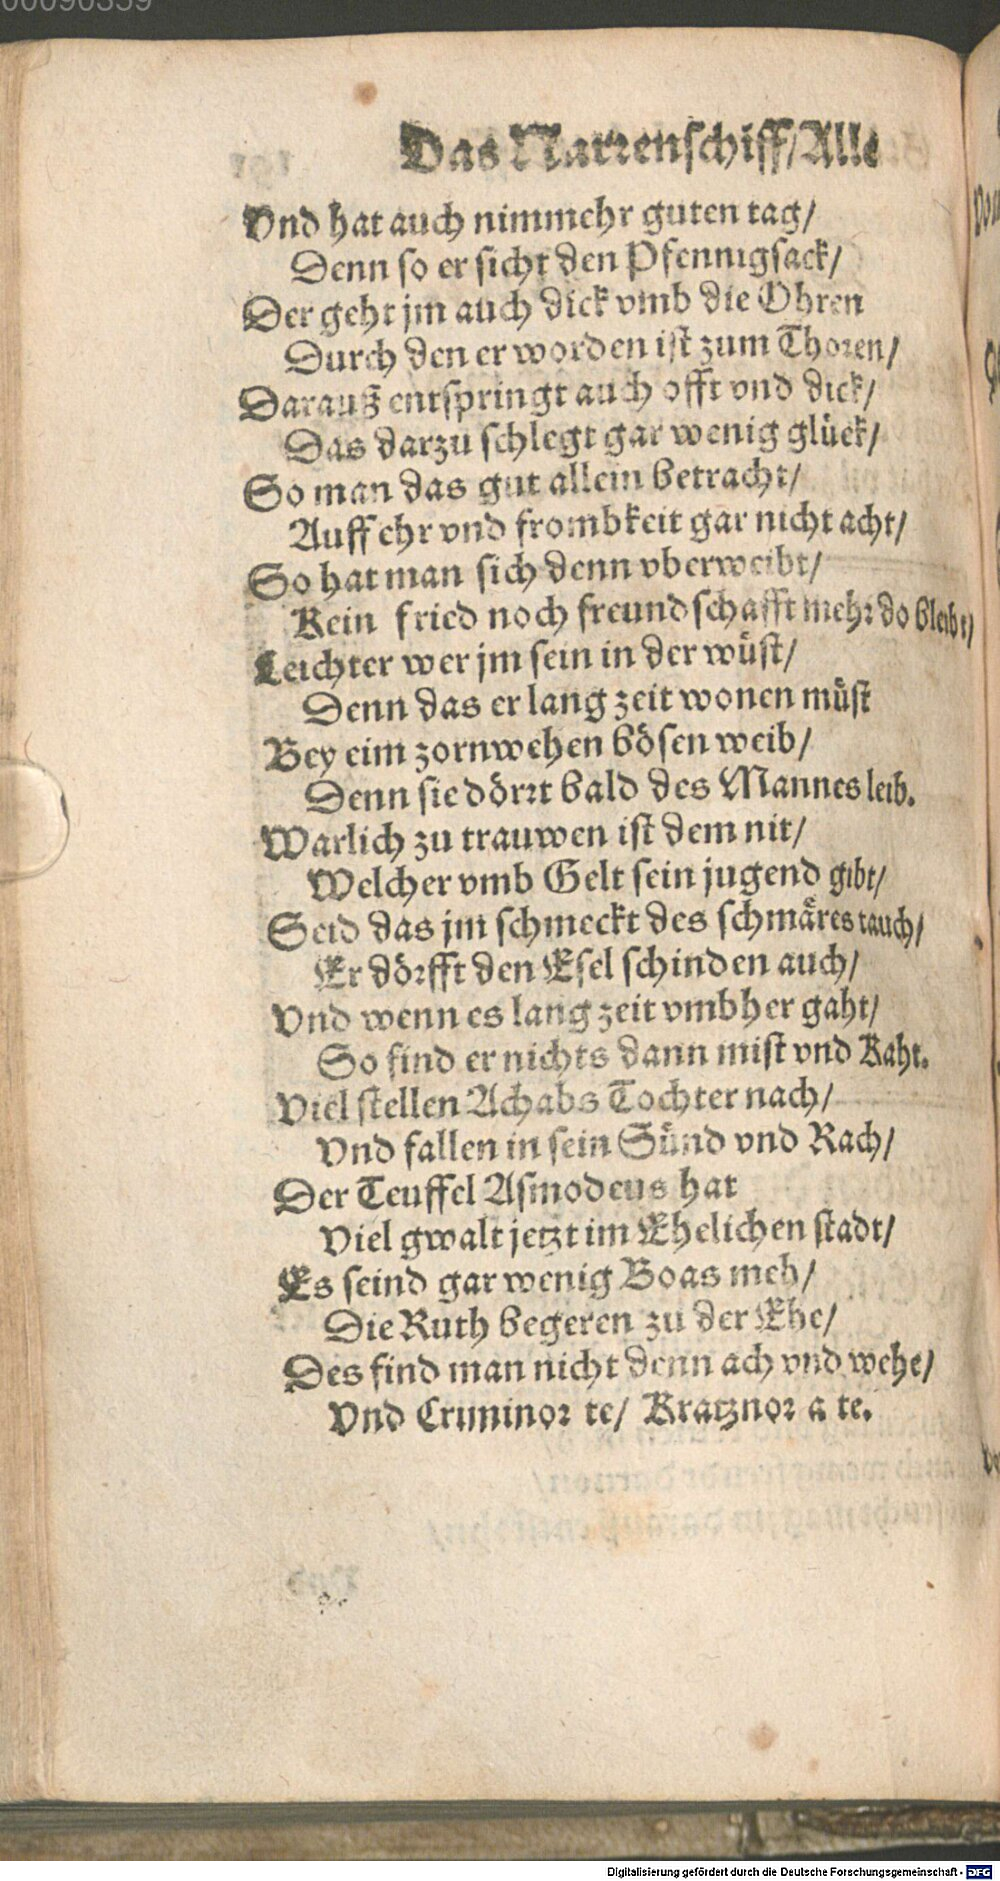 00090359
Das Narrenschiff/Alle
Vnd hat auch nimmehr guten tag/
Denn so er sicht den Pfennigsack/
Der geht jm auch dick vmb die Ohren
Durch den er worden ist zum Thoren/
Darauß entspringt auch offt vnd dick/
Das darzu schlegt gar wenig glück/
So man das gut allein betracht/
Auff ehr vnd frombkeit gar nicht acht/
So hat man sich denn vberweibt/
Kein fried noch freundschafft mehr do bleibt/
Leichter wer jm sein in der wüst/
Denn das er lang zeit wonen müst
Bey eim zornwehen bösen weib/
Denn sie dörrt bald des Mannes leib.
Warlich zu trauwen ist dem nit/
Welcher vmb Gelt sein jugend gibt/
Seid das jm schmeckt des schmäres rauch/
Er dörfft den Esel schinden auch/
Vnd wenn es lang zeit vmbher gaht/
So find er nichts dann mist vnd Kaht.
Viel stellen Achabs Tochter nach/
Vnd fallen in sein Sünd vnd Rach/
Der Teuffel Asmodeus hat
Viel gwalt jetzt im Ehelichen stadt/
Es seind gar wenig Boas meh/
Die Ruth begeren zu der Ehe/
Des find man nicht denn ach vnd wehe/
Vnd Cruninor te/ Kratznor a te.
Digitalisierung gefördert durch die Deutsche Forschungsgemeinschaft - DFG